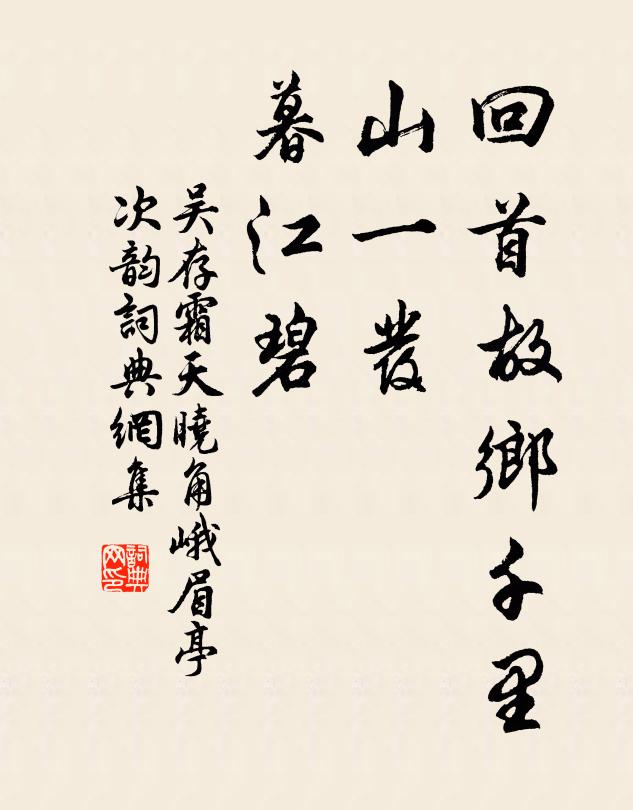 回首故鄉千里
山一發
暮江碧
吴存霜天曉角峨眉亭
次韵詞典網集
詞典網印